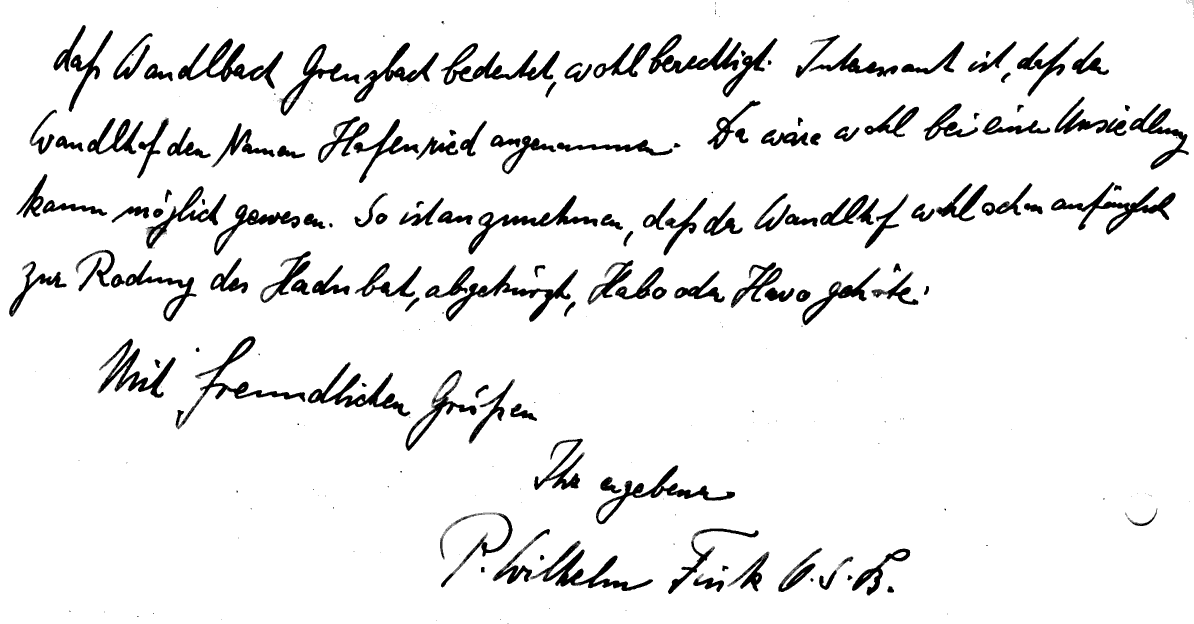 daß Wandlbach Grenzbach bedeutet, wohl berechtigt. Interessant ist, daß der
Wandlhof den Namen Hafenried angenommen. Da wäre wohl bei einer Umsiedlung
kaum möglich gewesen. So ist anzunehmen, daß der Wandlhof wohl schon anfänglich
zur Rodung des Hadubert, abgekürzt, Habo oder Havo gehörte.
Mit freundlichen Grüßen
Ihr ergebener
P. Wilhelm Fink O.S.B.